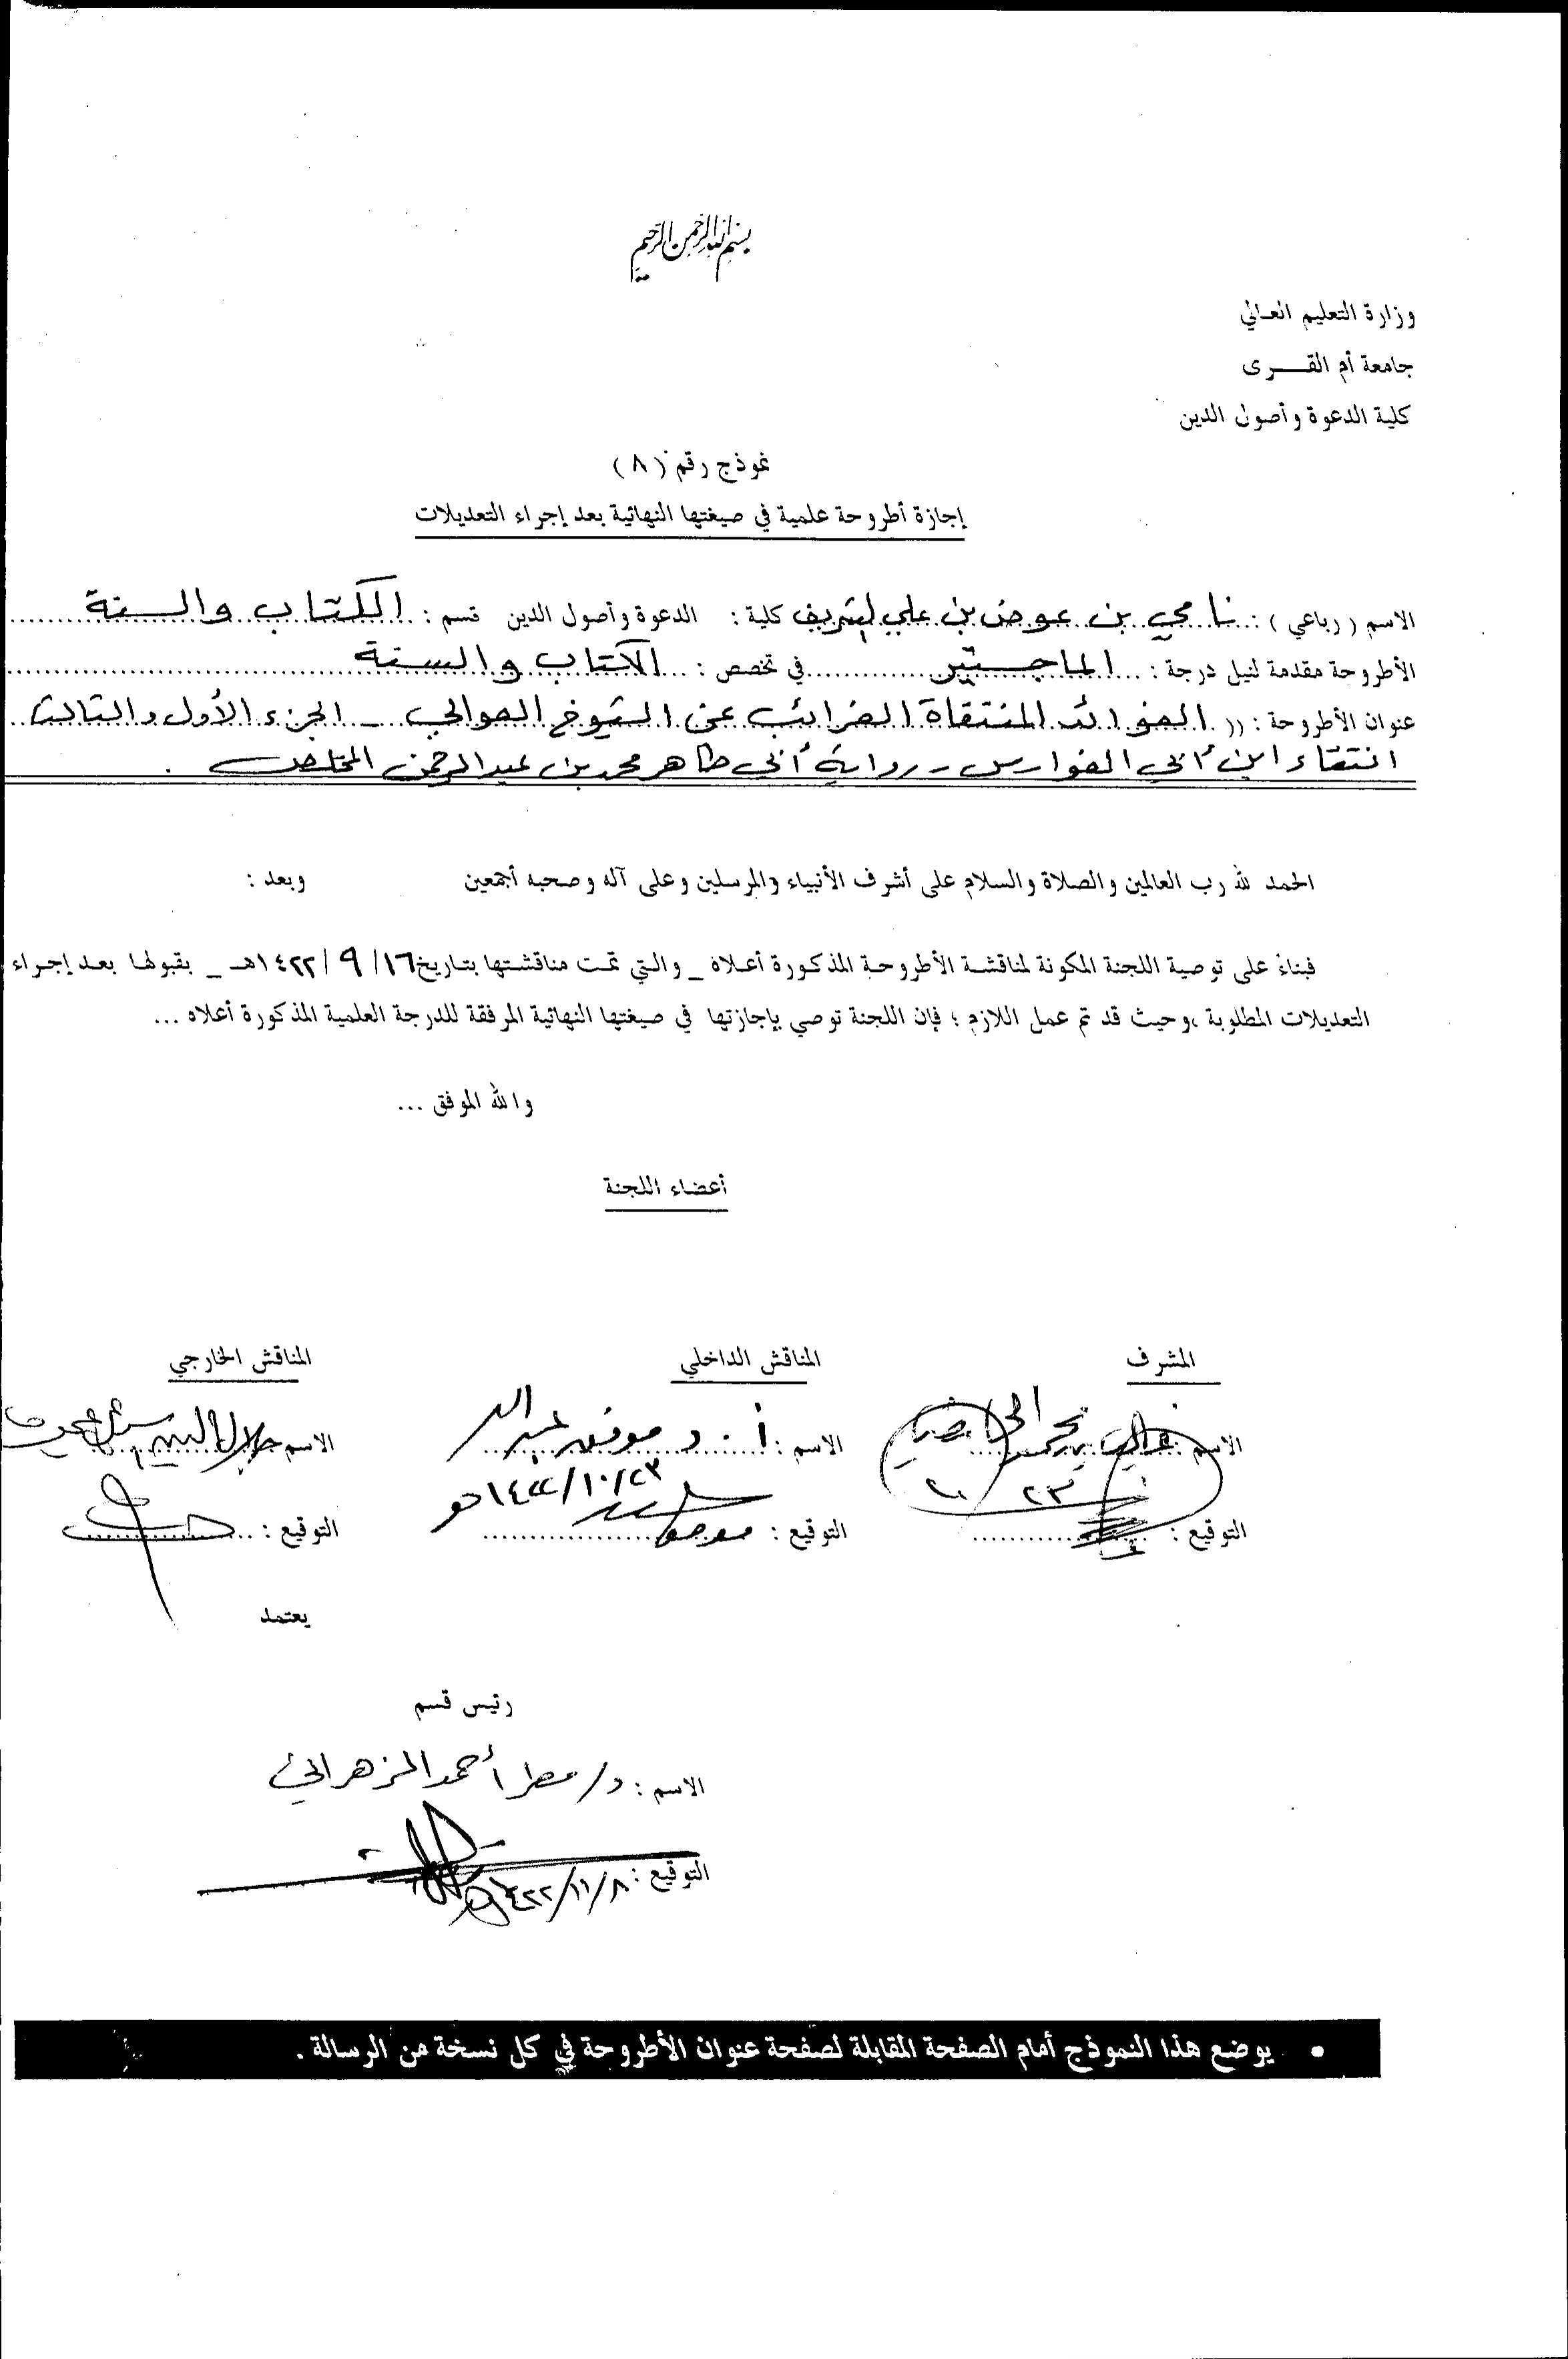 بسم الله الرحمن الرحيم
وزارة التعليم العالي
جامعة أم القـــرى
كلية الدعوة وأصول الدين
نموذج رقم (٨)
إجازة أطروحة علمية في صيغتها النهائية بعد إجراء التعديلات
الاسم (رباعي): نامي بن عوض بن علي الشريف كلية: الدعوة وأصول الدين قسم: الكتاب والسنة
الأطروحة مقدمة لنيل درجة: الماجستير في تخصص: الكتاب والسنة
عنوان الأطروحة: (( الفوائد المنتقاة الغرائب عن الشيوخ العوالي - الجزء الأول والثالث
انتقاء ابن أبي الفوارس - رواية أبي طاهر محمد بن عبدالرحمن المخلص .
الحمد لله رب العالمين والصلاة والسلام على أشرف الأنبياء والمرسلين وعلى آله وصحبه أجمعين وبعد:
فبناءً على توصية اللجنة المكونة لمناقشة الأطروحة المذكورة أعلاه _ والتي تمت مناقشتها بتاريخ ١٦/ ٩ /١٤٢٢هـ _ بقبولها بعد إجراء
التعديلات المطلوبة ، وحيث قد تم عمل اللازم ؛ فإن اللجنة توصي بإجازتها في صيغتها النهائية المرفقة للدرجة العلمية المذكورة أعلاه ...
والله الموفق ...
أعضاء اللجنة
المشرف المناقش الداخلي المناقش الخارجي
الاسم: الاسم: أ.د موفق عبدالله الاسم: جلال الدين
٢٣ ١٤٢٢/١٠/٢٣هـ
التوقيع: التوقيع: التوقيع:
يعتمد
رئيس قسم
الاسم: د/ مطر أحمد الزهراني
التوقيع: ١٤٢٢/١١/٨
• يوضع هذا النموذج أمام الصفحة المقابلة لصفحة عنوان الأطروحة في كل نسخة من الرسالة .